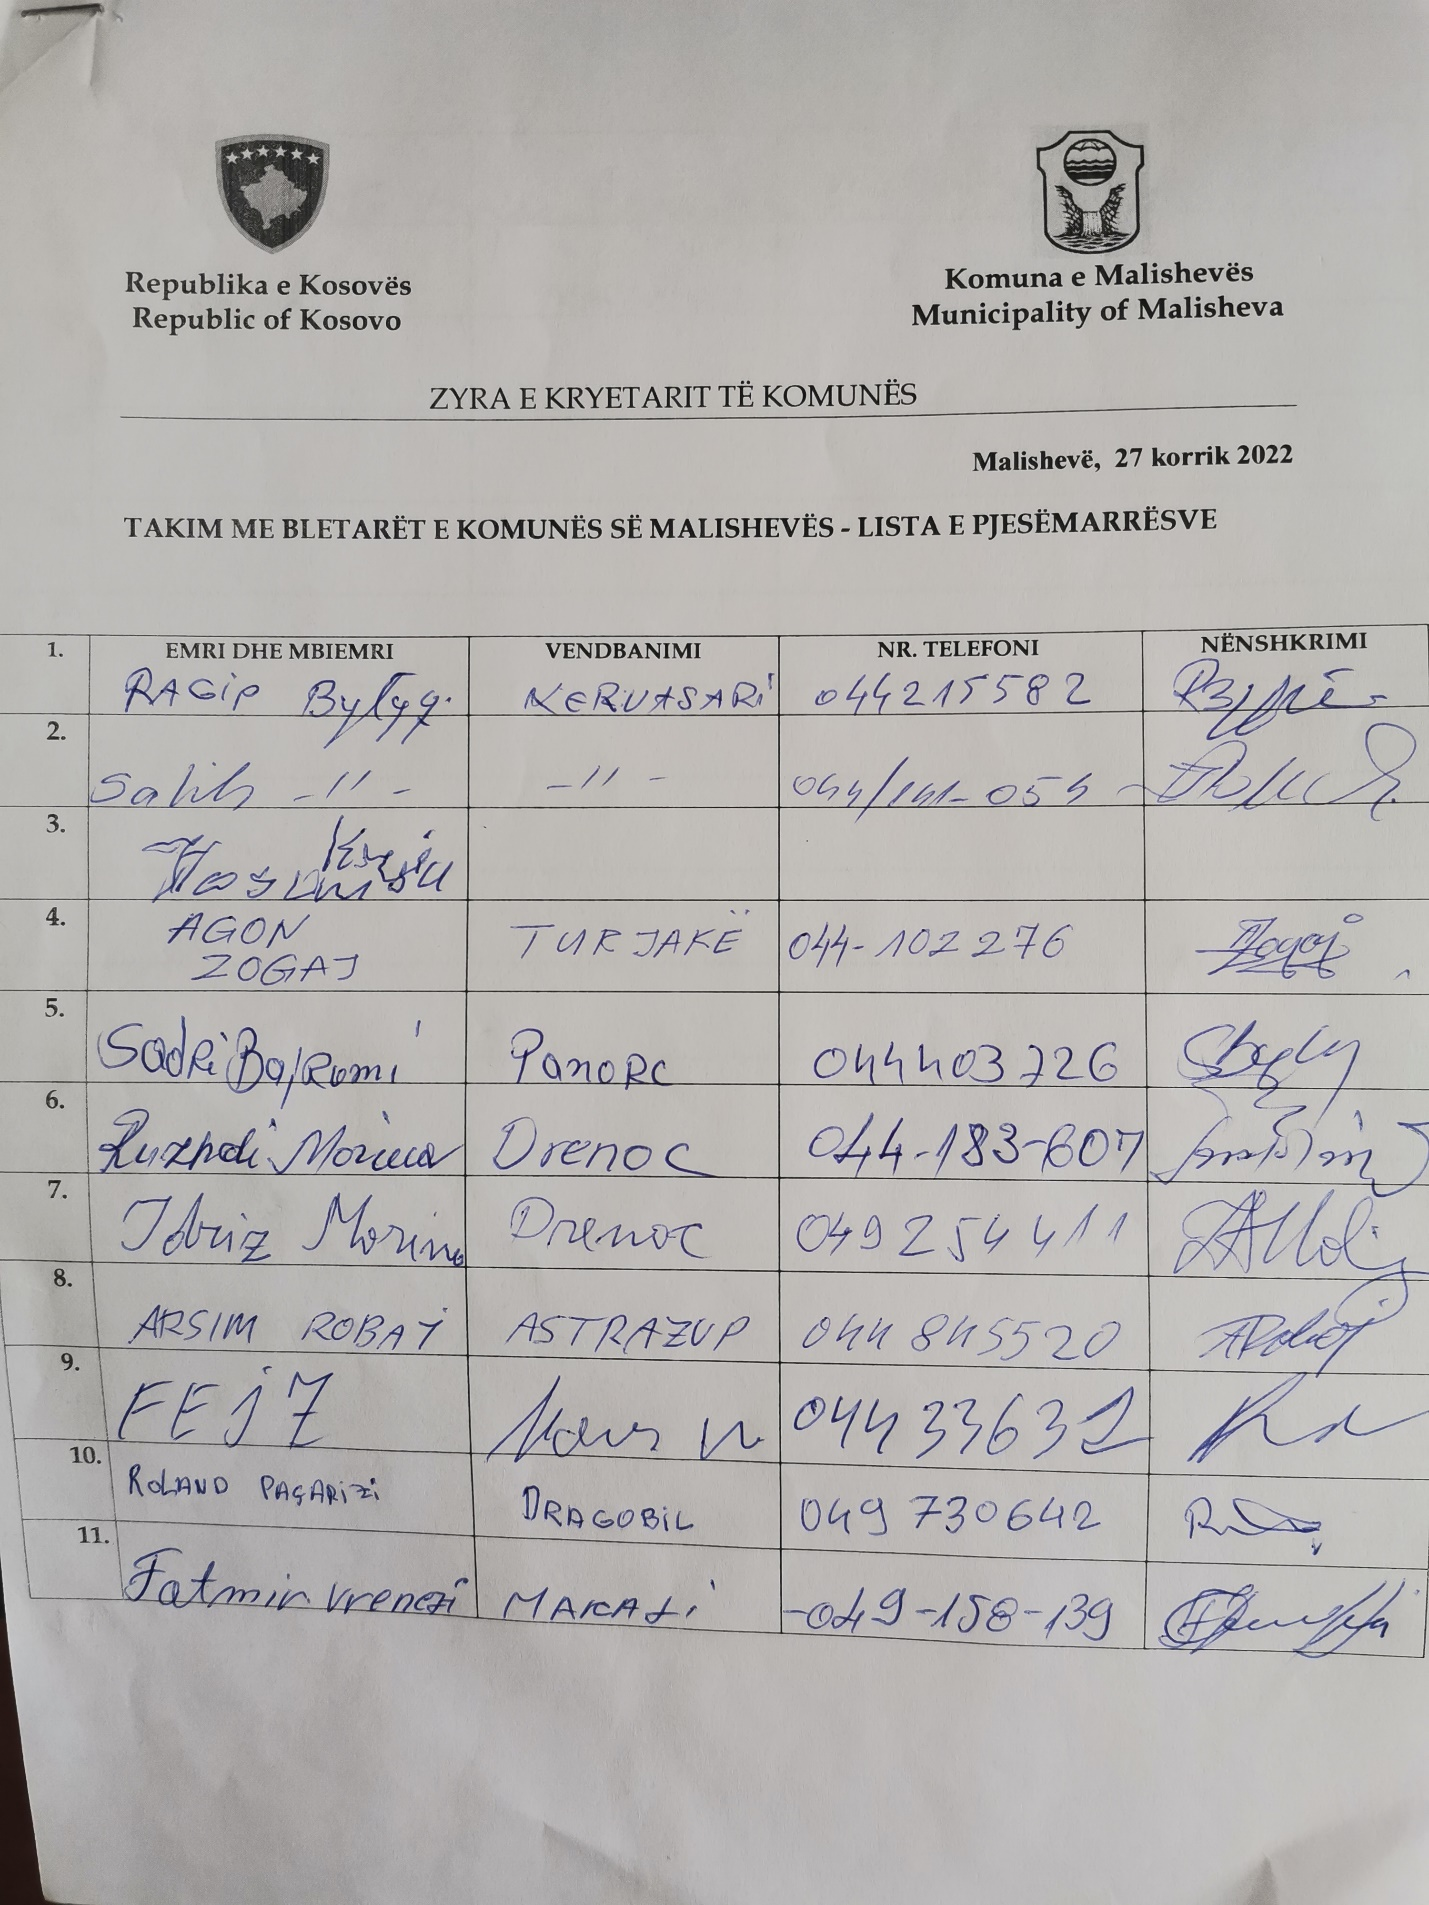 Republika e Kosovës
Republic of Kosovo
Komuna e Malishevës
Municipality of Malisheva
ZYRA E KRYETARIT TË KOMUNËS
Malishevë, 27 korrik 2022
TAKIM ME BLETARËT E KOMUNËS SË MALISHEVËS - LISTA E PJESËMARRËSVE
1. EMRI DHE MBIEMRI VENDBANIMI NR. TELEFONI NËNSHKRIMI
RAGIP Bytyçi KERVASARI 044215582
2.
Salih -11- -11-
3.
4. AGON ZOGAJ TURJAKË 044-102276 Zogaj
5.
Sadri Bajrami Panorc 044403726
6.
Ruzhdi Morina Drenoc 044-183-607
7.
Idriz Morina Drenoc 049254411
8.
ARSIM ROBAJ ASTRAZUP 044845520 ARobaj
9.
FEJZ 04433632
10.
ROLAND PAÇARIZI DRAGOBIL 049 730642
11.
Fatmir Vrenezi -049-158-139